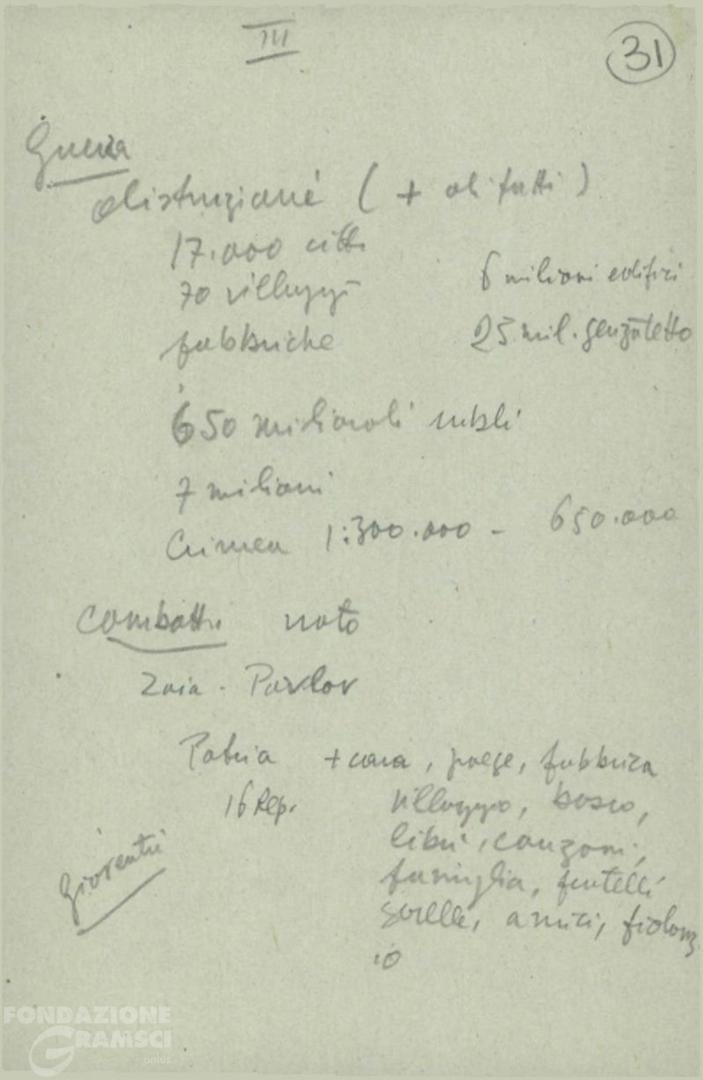 III
31
Guerra
distruzioni (+ di tutti)
17.000 città
70 villaggi
6 milioni edifici
fabbriche
25 mil. senzatetto
650 miliardi rubli
7 milioni
Crimea 1:300.000 - 650.000
combatti noto
Zoia - Pavlov
Patria + cara, paese, fabbrica
16 Rep. villaggio, bosco,
libri, canzoni,
Gioventù
famiglia, fratelli
sorelle, amici, fidanz
io
FONDAZIONE
GRAMSCI
onlus